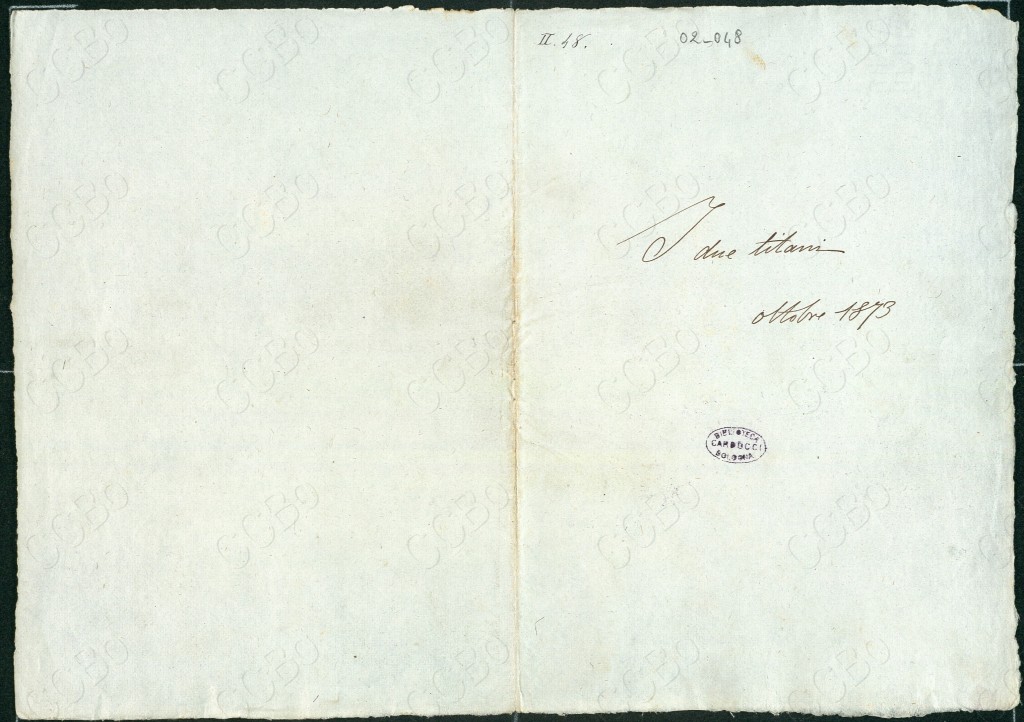 II. 48.
02-048
I due titani
ottobre 1873
BIBLIOTECA
CARDUCCI
BOLOGNA
CCBo